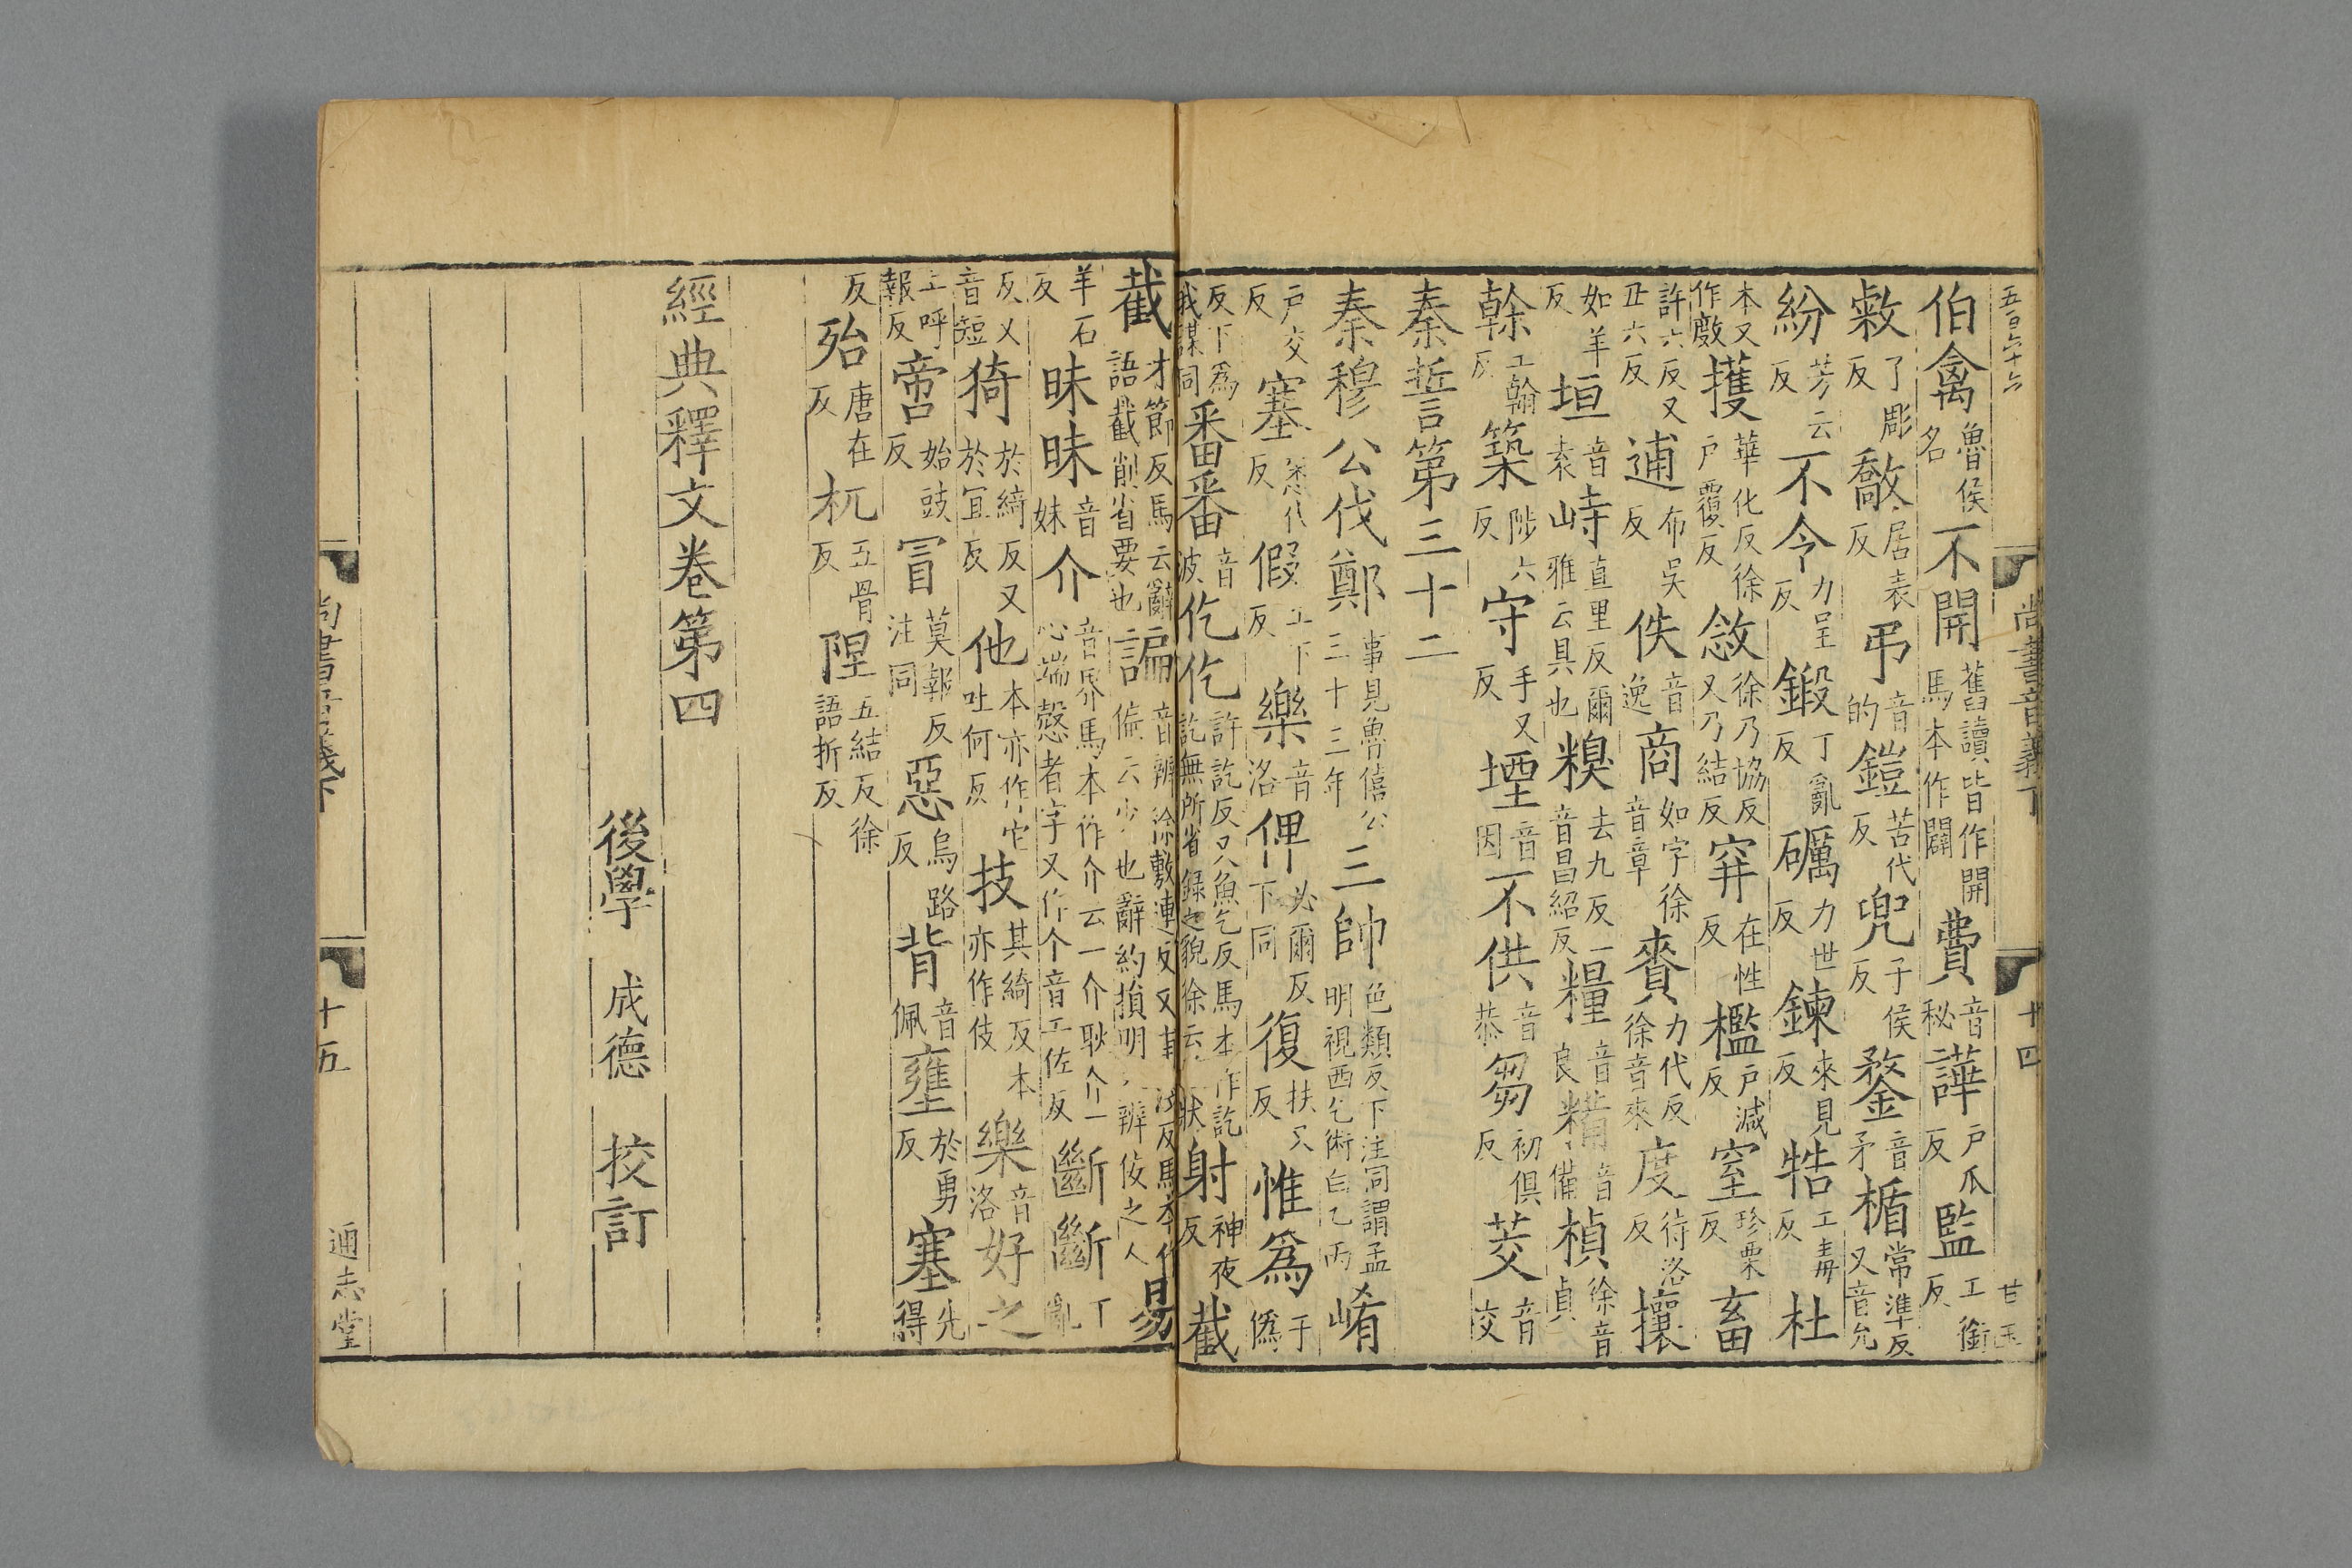 五百六十六
尚書音義下
十四
伯禽魯侯名不開舊讀皆作開馬本作闢費音秘譁戶瓜反監工銜反
敹了彫反敿居表反弔音的鎧苦代反兜子侯反鍪音矛楯常準反又音允
紛芳云反不令力呈反鍛丁亂反礪力世反鍊來見反牿工毒反杜
本又作㪏擭華化反徐戶覆反敜徐乃協反又乃結反穽在性反檻戶減反窒珍栗反畜
許六反又丑六反逋布吳反佚音逸商如字徐音章賚力代反徐音來度待洛反攘
如羊反垣音袁峙直里反爾雅云具也糗去九反一音昌紹反糧音良糒音備楨徐音貞
榦工翰反築陟六反守手又反堙音因不供音恭芻初俱反茭音交
秦誓第三十二
秦穆公伐鄭事見魯僖公三十三年三帥色類反下注同謂孟明視西乞術白乙丙崤
戶交反塞悉代反假工下反樂音洛俾必爾反下同復扶又反惟爲于僞
反下爲我謀同番番音波仡仡許訖反又魚乞反馬本作訖訖無所省錄之貌徐云狀射神夜反截
截才節反馬云辭語截削省要也諞音辨徐敷連反又甫淺反馬本作偏云少也辭約損明辨佞之人易
羊石反昧昧音妹介音界馬本作介云一介耿介一心端愨者字又作个音工佐反斷斷丁亂
反又音短猗於綺反又於宜反他本亦作它吐何反技其綺反本亦作伎樂音洛好之
上呼報反啻始豉反冒莫報反注同惡烏路反背音佩壅於勇反塞先得
反殆唐在反杌五骨反隉五結反徐語折反
經典釋文卷第四
後學 成德 挍訂
尚書音義下
十五
通志堂